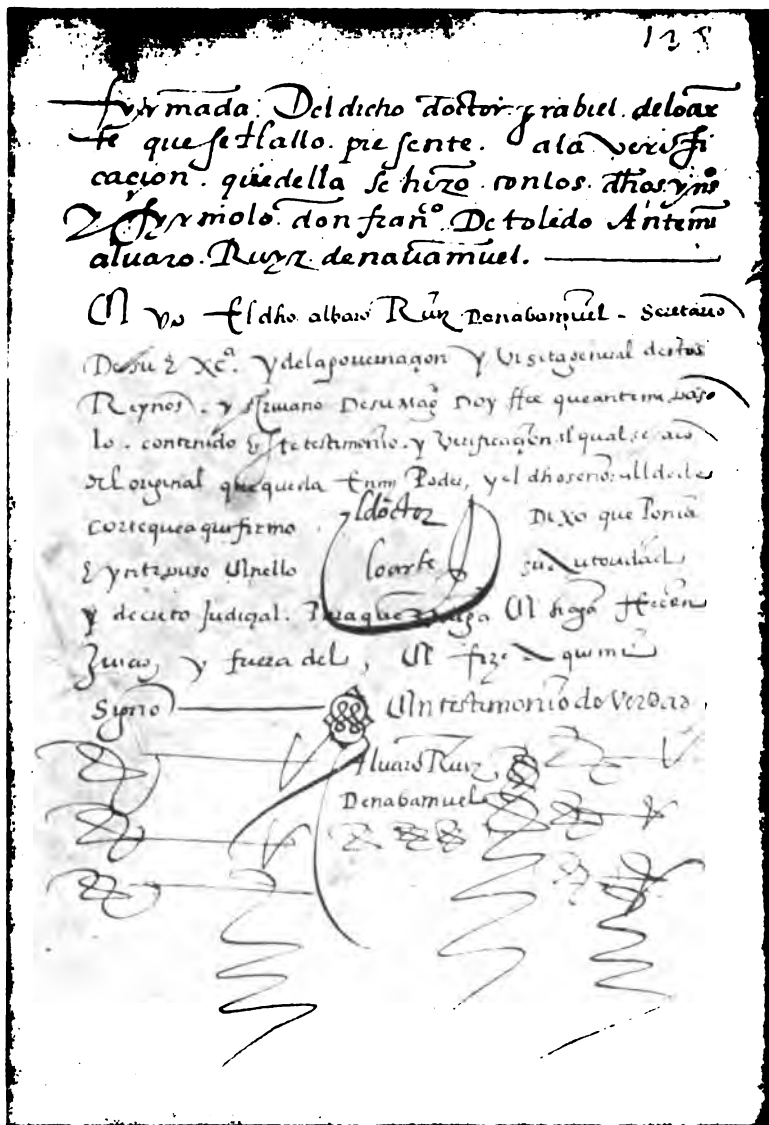 138
fyrmada. Del dicho doctor grabiel. de loar
te que se hallo. presente. a la verifi
cacion. que della se hizo. con los. dhos yn°s
y fyrmolo. don franco. De toledo Ante mi
alvaro. Ruyz. de navamuel.
yo El dho albaro Ruiz Denabamuel - Secretario
De su Exca. y de la governaçon y Visita general destos
Reynos. y scrivano De su Mag Doy ffee que ante mi paso
lo. contenido En este testimonio. y Verificaçon el qual se saco
del original que queda En mi Poder, y el dho señor alld de
corte que aqui firmo Dixo que Ponia
E ynterpuso En ello su Autoridad
El doctor
loarte
y decreto Judicial. Para que Valga En
y fuera del, En fize Aqui mi
Signo En testimonio de Verdad
Alvaro Ruiz
Denabamuel